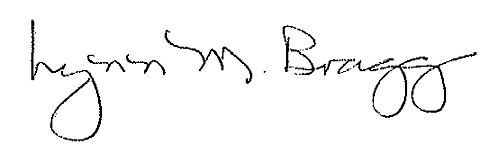 Lynn M. Bragg